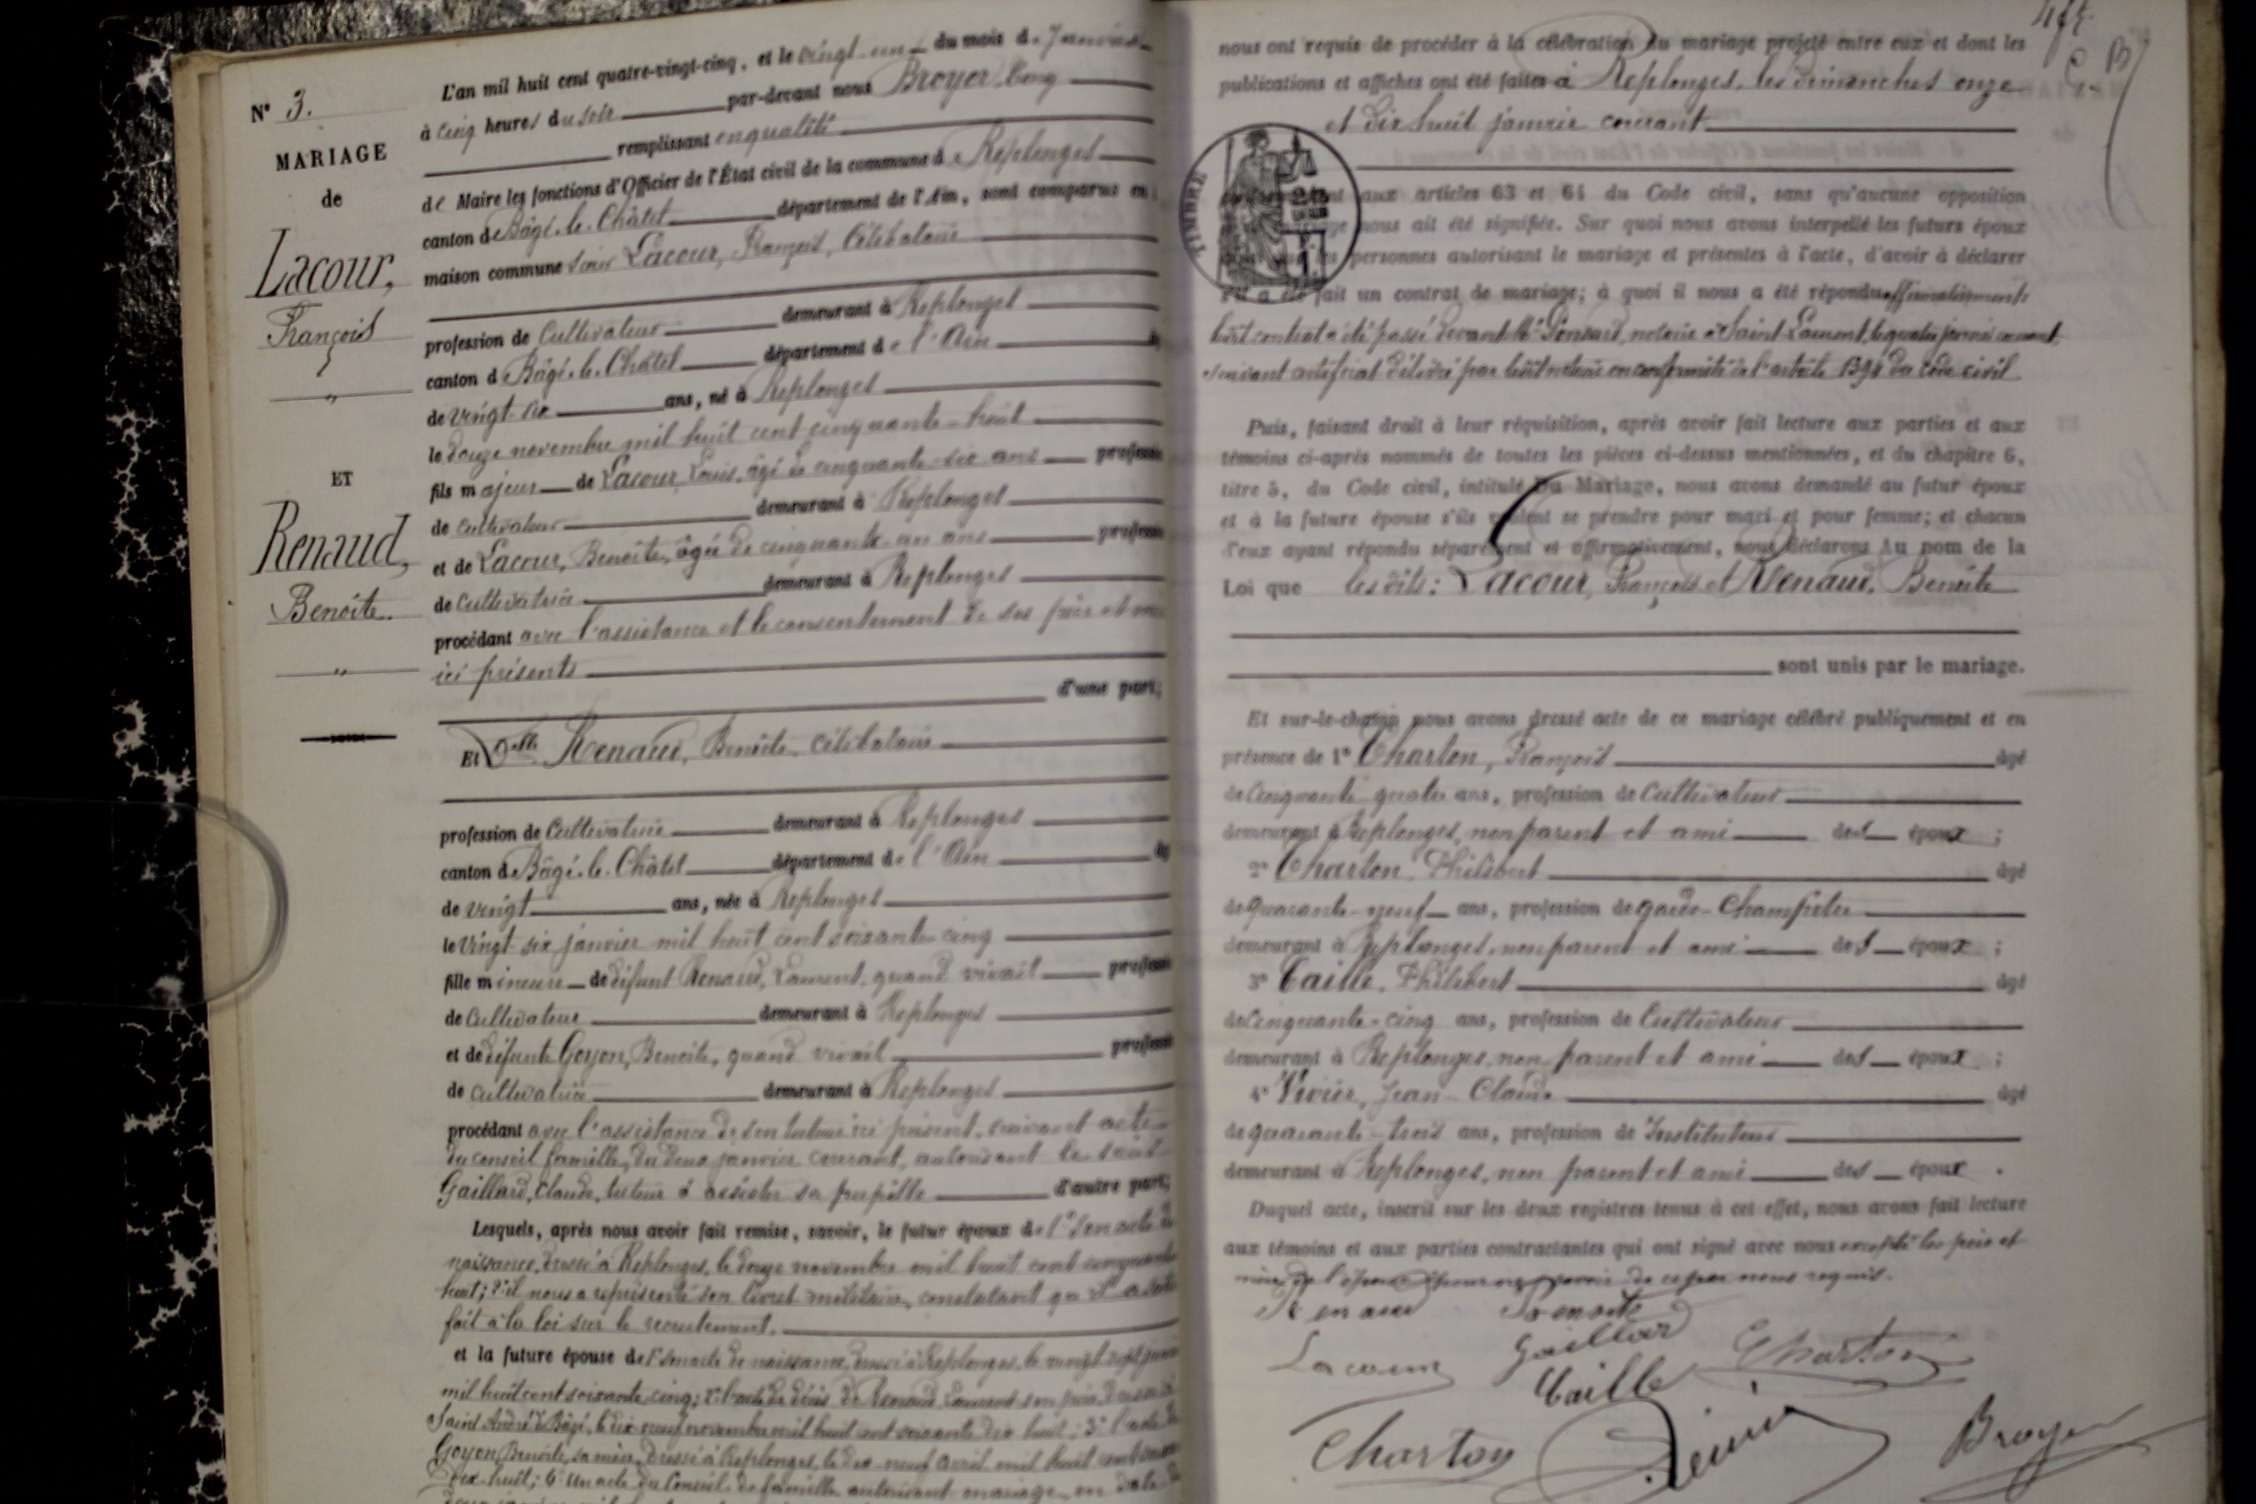 N° 3.
MARIAGE
de
Lacour,
François
ET
Renaud,
Benoite.
L'an mil huit cent quatre-vingt-cinq, et le vingt-un du mois de Janvier
à cinq heures du soir par-devant nous Broyer
remplissant en qualité
de Maire les fonctions d'Officier de l'État civil de la commune de Replonges
canton de Bâgé-le-Châtel département de l'Ain, sont comparus en
maison commune sieur Lacour, François, Célibataire
profession de Cultivateur demeurant à Replonges
canton de Bâgé-le-Châtel département de l'Ain
de vingt six ans, né à Replonges
le douze novembre mil huit cent cinquante-huit
fils majeur de Lacour, Louis, âgé de cinquante-six ans profession
de cultivateur demeurant à Replonges
et de Lacour, Benoite, âgée de cinquante-un ans profession
de Cultivatrice demeurant à Replonges
procédant avec l'assistance et le consentement de ses père et mère
ici présents
d'une part;
Et Dlle Renaud, Benoite, célibataire
profession de Cultivatrice demeurant à Replonges
canton de Bâgé-le-Châtel département de l'Ain
de vingt ans, née à Replonges
le vingt six janvier mil huit cent soixante-cinq
fille mineure de défunt Renaud, Laurent, quand vivait profession
de Cultivateur demeurant à Replonges
et de défunte Goyon, Benoite, quand vivait profession
de cultivatrice demeurant à Replonges
procédant avec l'assistance de son tuteur ici présent, suivant acte
du conseil famille, du deux janvier courant, autorisant le sieur
Gaillard, Claude, tuteur à assister sa pupille d'autre part;
Lesquels, après nous avoir fait remise, savoir, le futur époux de 1° son acte de
naissance, dressé à Replonges, le douze novembre mil huit cent cinquante
huit; 2° il nous a représenté son livret militaire, constatant qu'il a satis
fait à la loi sur le recrutement.
et la future épouse de 1° son acte de naissance, dressé à Replonges, le vingt sept janvier
mil huit cent soixante-cinq; 2° l'acte de décès de Renaud, Laurent, son père, dressé à
Saint André de Bâgé, le dix-neuf novembre mil huit cent soixante dix huit; 3° l'acte de
Goyon, Benoite, sa mère, dressé à Replonges, le dix-neuf avril mil huit cent
dix-huit; 4° Un acte du Conseil de famille autorisant mariage, en date du
nous ont requis de procéder à la célébration du mariage projeté entre eux et dont les
publications et affiches ont été faites à Replonges, les dimanches onze
et dix huit janvier courant
TIMBRE
aux articles 63 et 64 du Code civil, sans qu'aucune opposition
nous ait été signifiée. Sur quoi nous avons interpellé les futurs époux
personnes autorisant le mariage et présentes à l'acte, d'avoir à déclarer
s'il a été fait un contrat de mariage; à quoi il nous a été répondu affirmativement
ledit contrat a été passé devant Me Ponsard, notaire à Saint Laurent, le quatre janvier courant
suivant certificat délivré par ledit notaire en conformité de l'article 1394 du code civil
Puis, faisant droit à leur réquisition, après avoir fait lecture aux parties et aux
témoins ci-après nommés de toutes les pièces ci-dessus mentionnées, et du chapitre 6,
titre 5, du Code civil, intitulé Du Mariage, nous avons demandé au futur époux
et à la future épouse s'ils veulent se prendre pour mari et pour femme; et chacun
d'eux ayant répondu séparément et affirmativement, nous déclarons au nom de la
Loi que lesdits: Lacour, François et Renaud, Benoite
sont unis par le mariage.
Et sur-le-champ nous avons dressé acte de ce mariage célébré publiquement et en
présence de 1° Charton, François âgé
de cinquante-quatre ans, profession de Cultivateur
demeurant à Replonges, non parent et ami des époux;
2° Charton, Philibert âgé
de quarante-neuf ans, profession de garde-Champêtre
demeurant à Replonges, non parent et ami des époux;
3° Taille, Philibert âgé
de cinquante-cinq ans, profession de Cultivateur
demeurant à Replonges, non parent et ami des époux;
4° Vivier, Jean-Claude âgé
de quarante-trois ans, profession de Instituteur
demeurant à Replonges, non parent et ami des époux.
Duquel acte, inscrit sur les deux registres tenus à cet effet, nous avons fait lecture
aux témoins et aux parties contractantes qui ont signé avec nous excepté les père et
mère de l'époux de ce par nous requis.
Renaud Benoite
Lacour Gaillard Charton
Taille
Charton Vivier Broyer